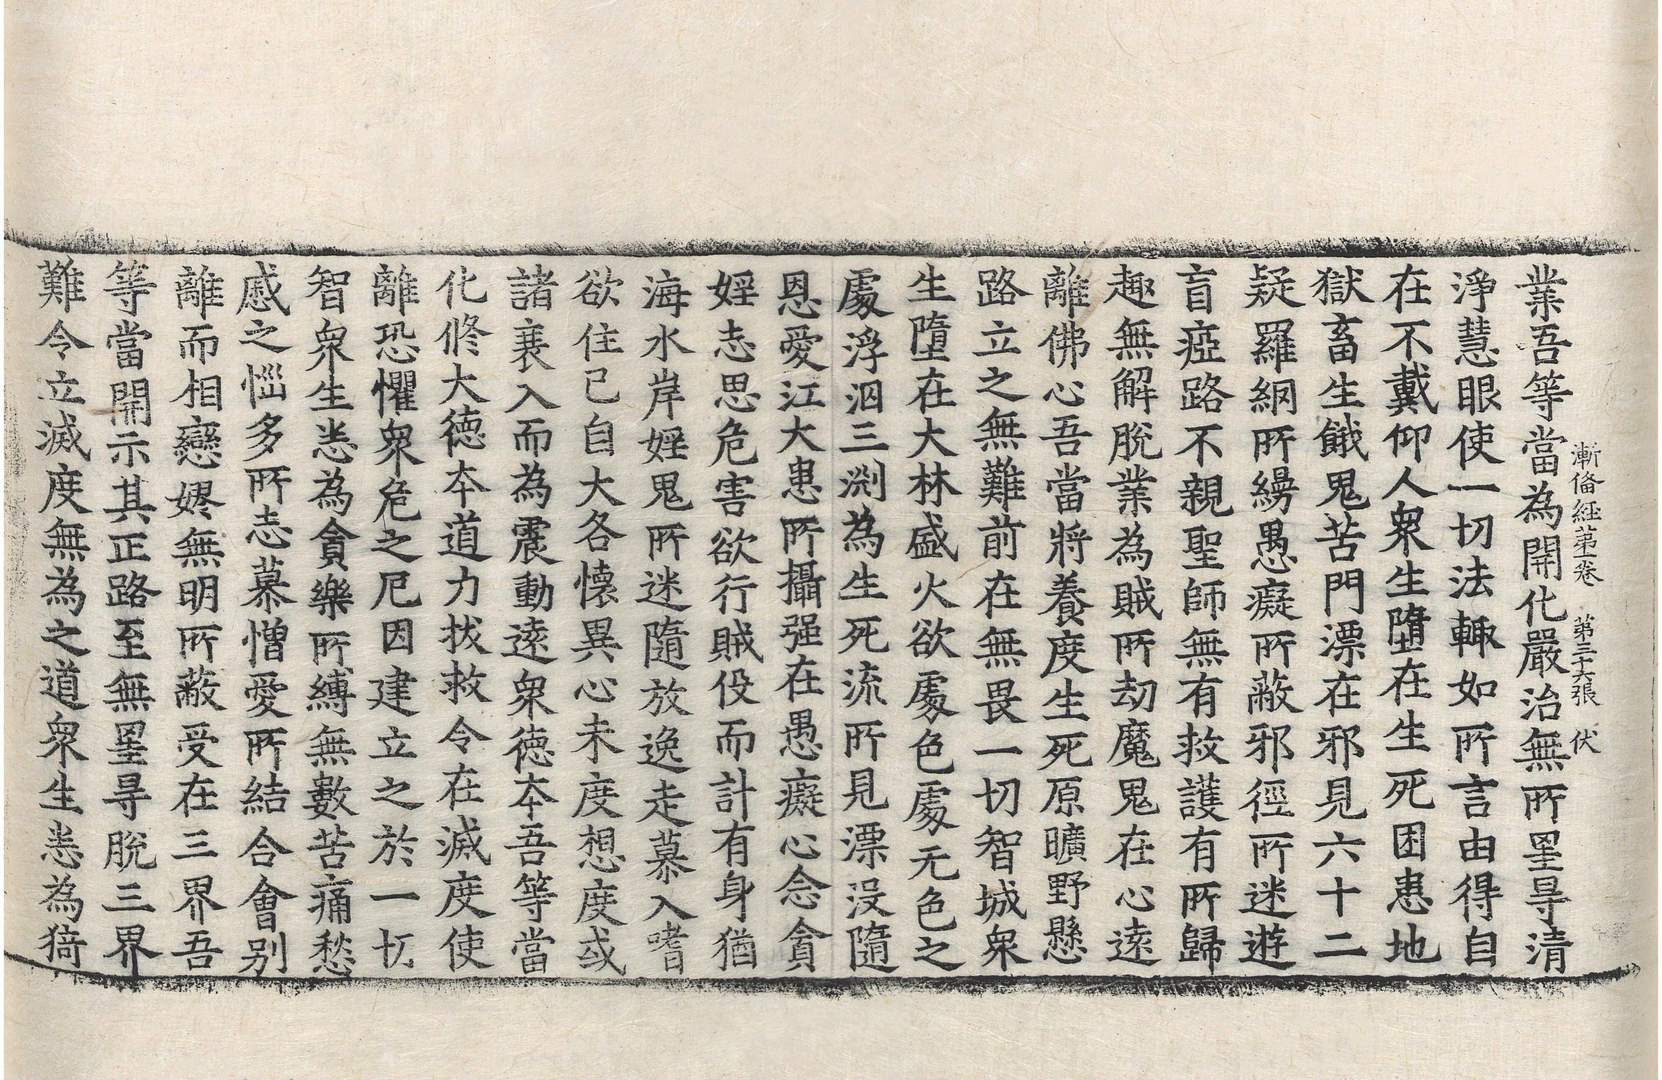 漸俻経第一卷　第三十六張　伏
業吾等當為開化嚴治無所罣㝵清
淨慧眼使一切法輙如所言由得自
在不戴仰人衆生墮在生死困患地
獄畜生餓鬼苦門漂在邪見六十二
疑羅網所纒愚癡所蔽邪徑所迷遊
盲瘂路不親聖師無有救護有所歸
趣無解脫業為賊所劫魔鬼在心遠
離佛心吾當將養度生死原曠野懸
路立之無難前在無畏一切智城衆
生墮在大林盛火欲處色處无色之
處浮泅三渕為生死流所見漂沒隨
恩愛江大患所攝强在愚癡心念貪
婬恚思危害欲行賊伇而計有身猶
海水岸婬鬼所迷隨放逸走慕入嗜
欲住己自大各懷異心未度想度或
諸衰入而為震動遠衆德夲吾等當
化修大德夲道力拔救令在滅度使
離恐懼衆危之厄因建立之於一切
智衆生恙為貪樂所縛無數苦痛愁
慼之惱多所恚慕憎愛所結合會别
離而相戀嫪無明所蔽受在三界吾
等當開示其正路至無罣㝵脫三界
難令立滅度無為之道衆生恙為猗